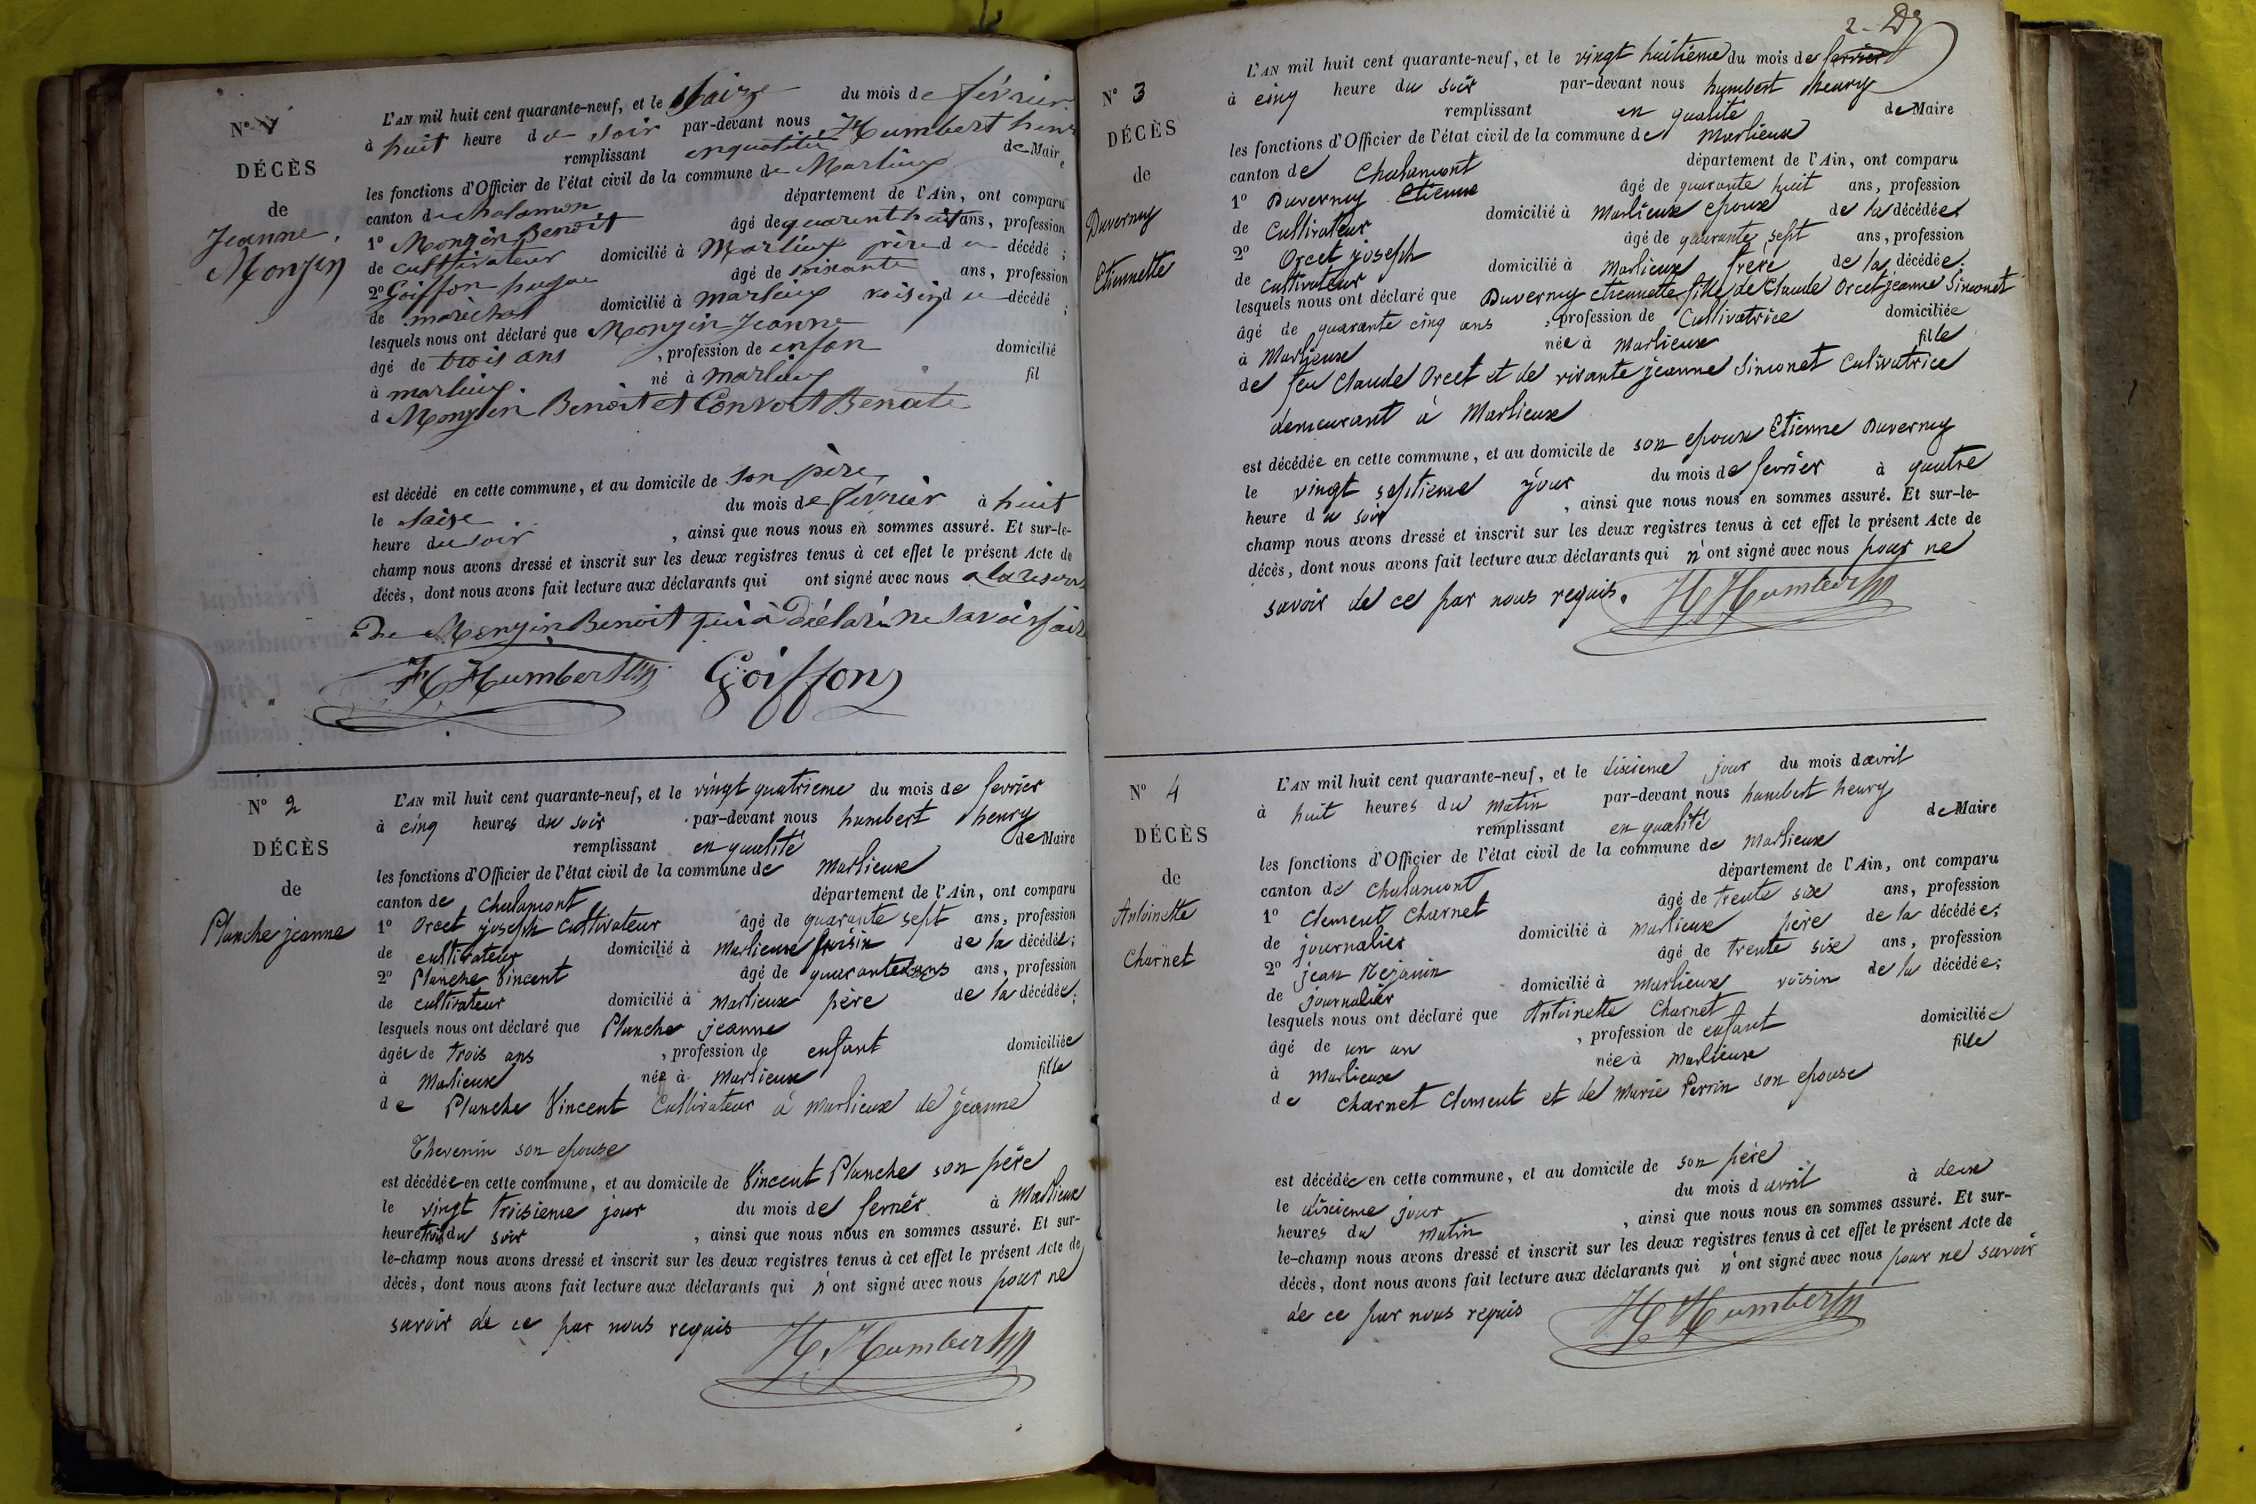 N° 1
DÉCÈS
de
Jeanne
Monjin
L'AN mil huit cent quarante-neuf, et le Saize du mois de février
à huit heure du soir par-devant nous Humbert henr
remplissant enqualitée de Maire
les fonctions d'Officier de l'état civil de la commune de Marlieux
canton de chalamon département de l'Ain, ont comparu
1° Monjin Benoit âgé de quarent huit ans, profession
de culttivateur domicilié à Marlieux père du décédé ;
2° Goiffon hugue âgé de soixante ans, profession
de maréchal domicilié à marlieux voisin du décédé ;
lesquels nous ont déclaré que Monjin Jeanne
âgé de trois ans , profession de enfan domicilié
à marlieux né à marlieux fil
d Monjin Benoit et Convert Benoite
est décédé en cette commune, et au domicile de son père
le saize du mois de fevrier à huit
heure du soir , ainsi que nous nous en sommes assuré. Et sur-le-
champ nous avons dressé et inscrit sur les deux registres tenus à cet effet le présent Acte de
décès, dont nous avons fait lecture aux déclarants qui ont signé avec nous a la reserv
De Monjin Benoit qui à déclaré ne savoir fair
H. Humbert Goiffon
N° 2
DÉCÈS
de
Planche jeanne
L'AN mil huit cent quarante-neuf, et le vingt quatrieme du mois de fevrier
à cinq heures du soir par-devant nous humbert henry
remplissant en qualité de Maire
les fonctions d'Officier de l'état civil de la commune de Marlieux
canton de chalamont département de l'Ain, ont comparu
1° Orcet joseph Cultivateur âgé de quarante sept ans, profession
de cultivateur domicilié à Marlieux voisin de la décédée;
2° Planche Vincent âgé de quarante ans, profession
de cultivateur domicilié à marlieux père de la décédée;
lesquels nous ont déclaré que Planche jeanne
âgée de trois ans , profession de enfant domiciliée
à Marlieux née à marlieux fille
de Planche Vincent Cultivateur à marlieux de jeanne
Thevenin son epouse
est décédée en cette commune, et au domicile de Vincent Planche son père
le vingt troisieme jour du mois de à Marlieux
heure trois du soir , ainsi que nous nous en sommes assuré. Et sur-
le-champ nous avons dressé et inscrit sur les deux registres tenus à cet effet le présent Acte de
décès, dont nous avons fait lecture aux déclarants qui n'ont signé avec nous pour ne
savoir de ce par nous requis
H. Humbert
2-
N° 3
DÉCÈS
de
Duverney
Etiennette
L'AN mil huit cent quarante-neuf, et le vingt huitieme du mois de fevrier
à cinq heure du soir par-devant nous humbert henry
remplissant en qualité de Maire
les fonctions d'Officier de l'état civil de la commune de Marlieux
canton de Chalamont département de l'Ain, ont comparu
1° Duverney Etienne âgé de quarante huit ans, profession
de Cultivateur domicilié à Marlieux epoux de la décédée;
2° Orcet joseph âgé de quarante sept ans, profession
de cultivateur domicilié à Marlieux frere de la décédée;
lesquels nous ont déclaré que Duverney etiennette fille de Claude Orcet jeanne Simonet
âgé de quarante cinq ans , profession de Cultivatrice domiciliée
à Marlieux née à Marlieux fille
de feu Claude Orcet et de vivante jeanne Simonet Culivatrice
demeurant à Marlieux
est décédée en cette commune, et au domicile de son epoux Etienne Duverney
le vingt septieme jour du mois de fevrier à quatre
heure du soir , ainsi que nous nous en sommes assuré. Et sur-le-
champ nous avons dressé et inscrit sur les deux registres tenus à cet effet le présent Acte de
décès, dont nous avons fait lecture aux déclarants qui n'ont signé avec nous pour ne
savoir de ce par nous requis.
H Humbert
N° 4
DÉCÈS
de
Antoinette
Charnet
L'AN mil huit cent quarante-neuf, et le dixieme jour du mois d'avril
à huit heures du matin par-devant nous humbert henry
remplissant en qualité de Maire
les fonctions d'Officier de l'état civil de la commune de Marlieux
canton de Chalamont département de l'Ain, ont comparu
1° Clement Charnet âgé de trente six ans, profession
de journalier domicilié à marlieux père de la décédée;
2° jean Mejanin âgé de trente six ans, profession
de journalier domicilié à marlieux voisin de la décédée;
lesquels nous ont déclaré que Antoinette Charnet
âgé de un an , profession de enfant domiciliée
à Marlieux née à Marlieux fille
de Charnet Clement et de Marie Perrin son epouse
est décédée en cette commune, et au domicile de son père
le dixieme jour du mois d'avril à deux
heures du matin , ainsi que nous nous en sommes assuré. Et sur-
le-champ nous avons dressé et inscrit sur les deux registres tenus à cet effet le présent Acte de
décès, dont nous avons fait lecture aux déclarants qui n'ont signé avec nous pour ne savoir
de ce par nous requis
H. Humbert